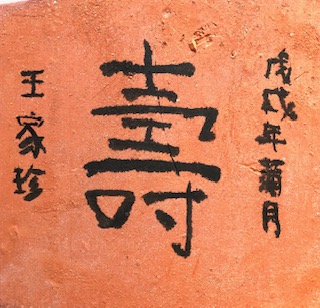 戊戌年月
壽
王家珍